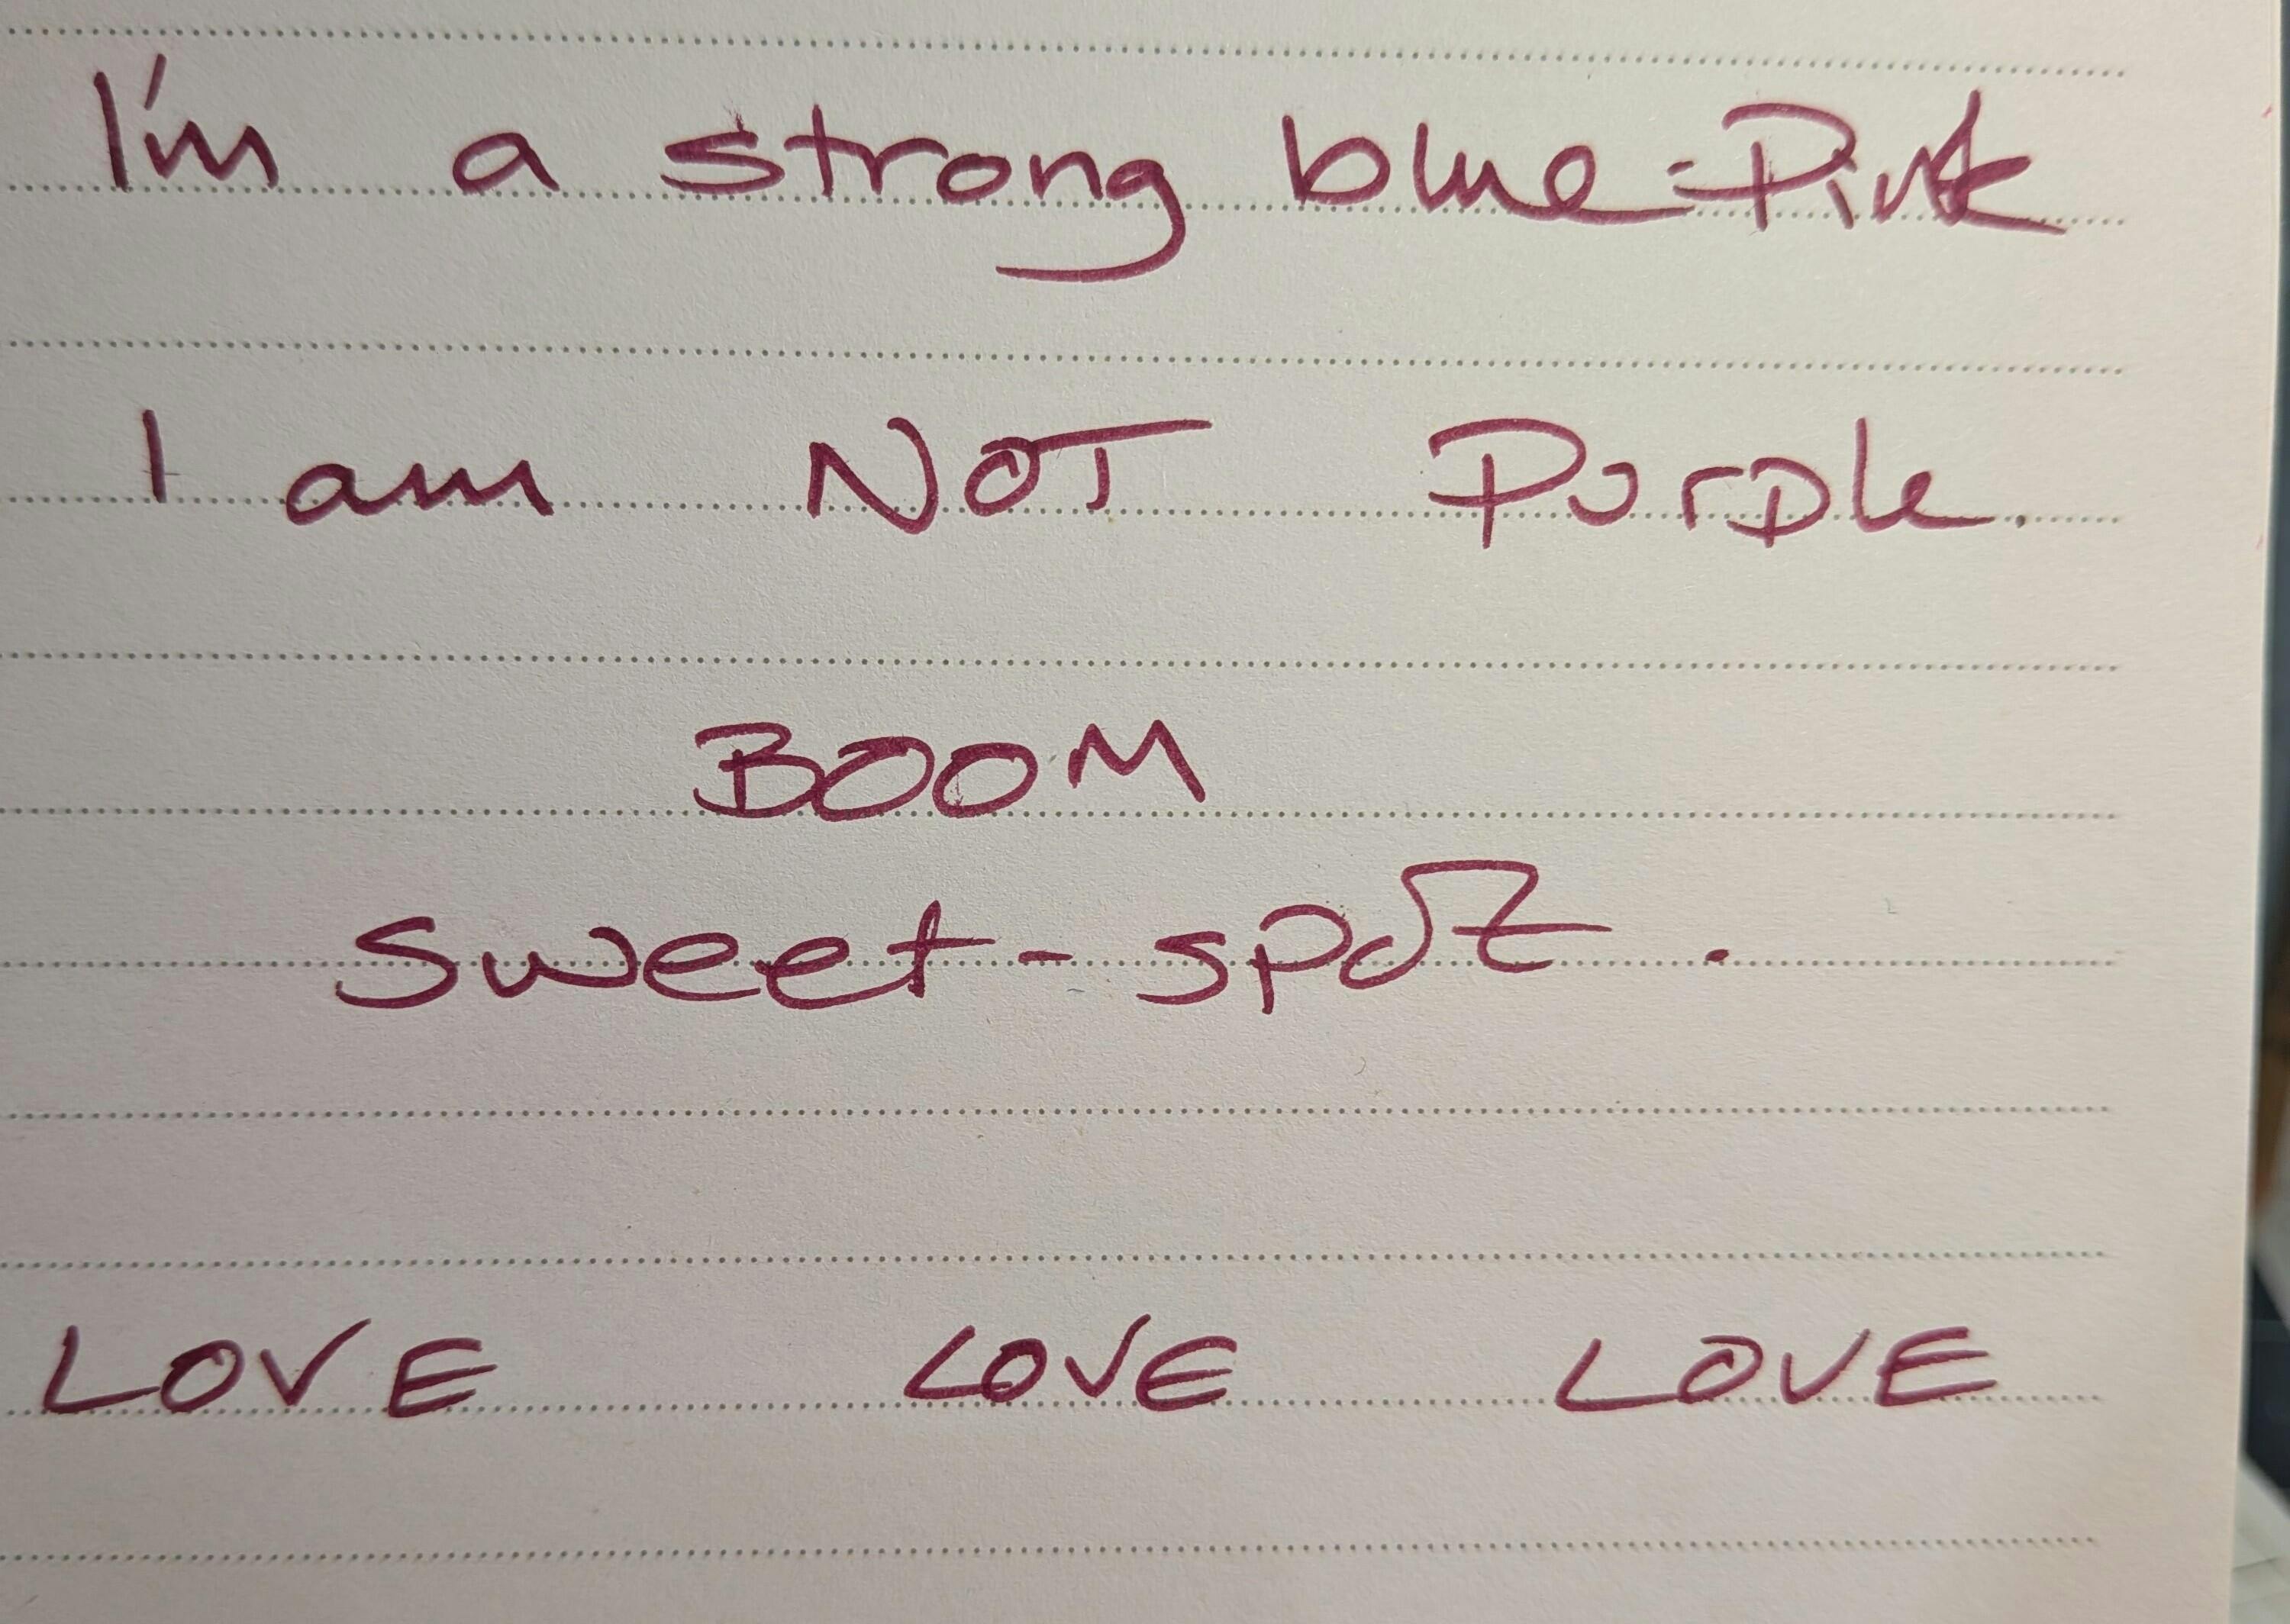 I'm a strong blue-Pink
I am NOT Purple.
BOOM
sweet-spot.
LOVE LOVE LOVE